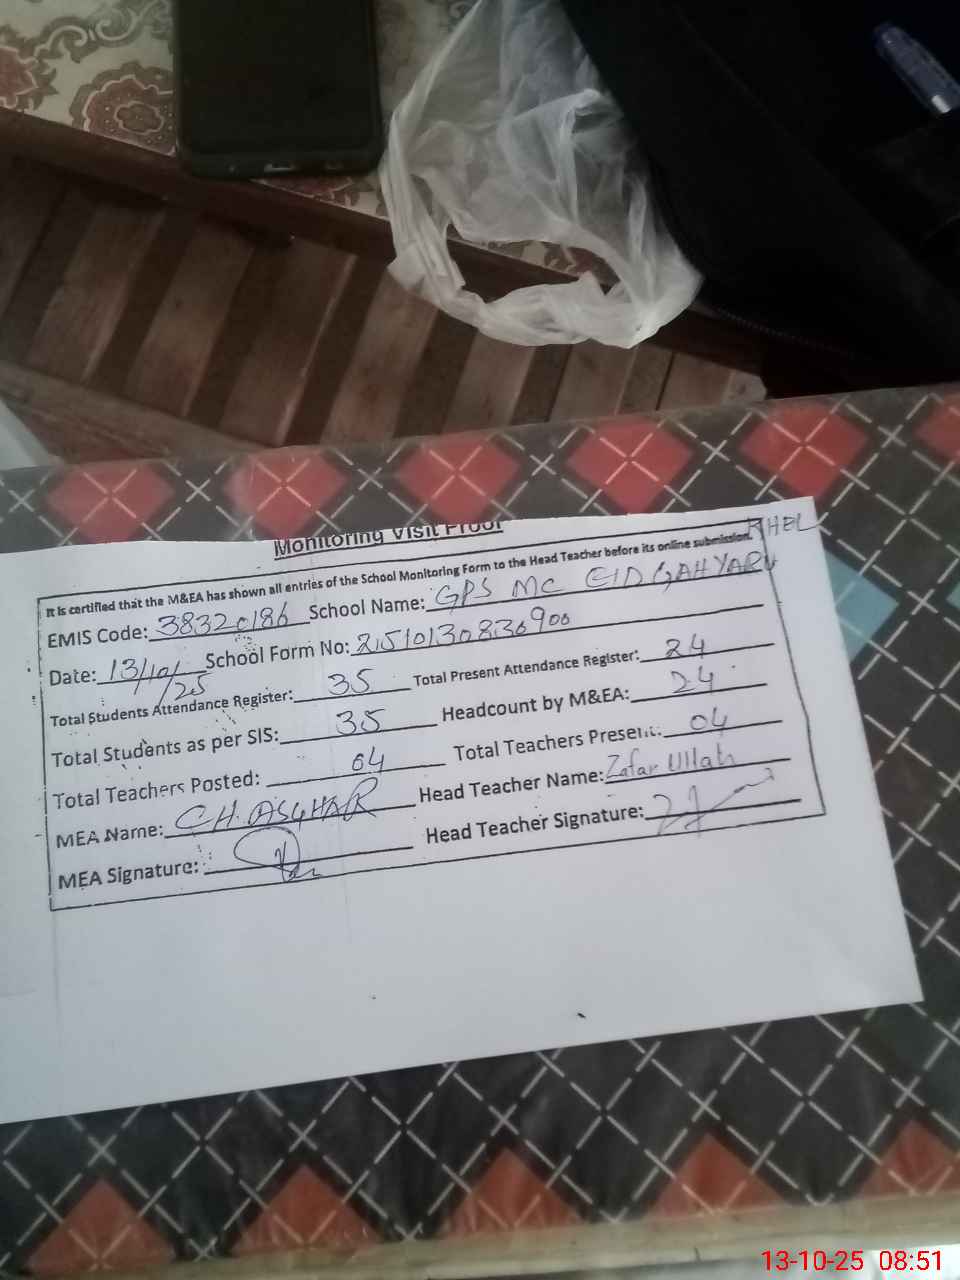 Monitoring Visit Proof
It is certified that the M&EA has shown all entries of the School Monitoring Form to the Head Teacher before its online submission.
EMIS Code: 38320186 School Name: GPS MC EIDGAHYARU KHEL
Date: 13/10/25 School Form No: 2510130830900
Total Students Attendance Register: 35 Total Present Attendance Register: 24
Total Students as per SIS: 35 Headcount by M&EA: 24
Total Teachers Posted: 04 Total Teachers Present: 04
MEA Name: CH ASGHAR Head Teacher Name: Zafar Ullah
MEA Signature: Head Teacher Signature:
13-10-25 08:51